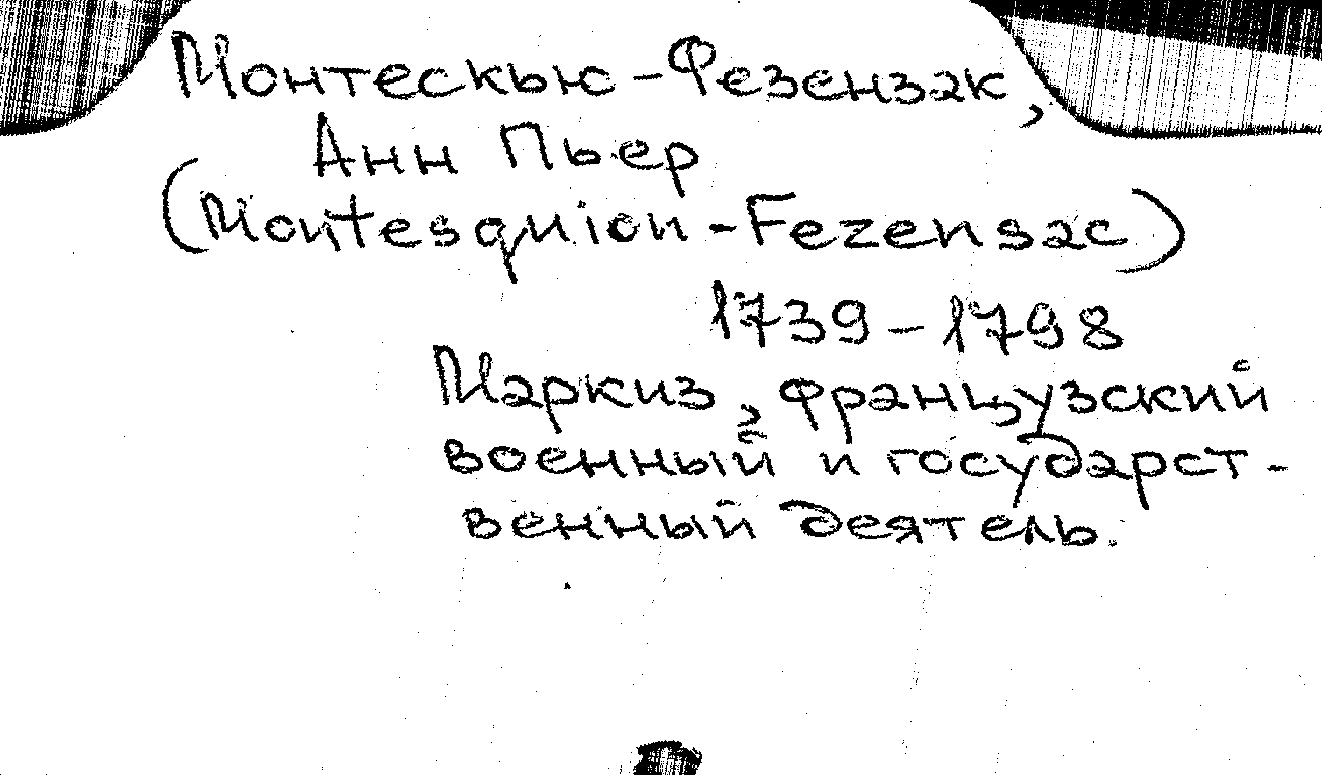 Монтескью-Фезензак,
Анн Пьер
(Montesquion-Fezensac)
1739-1798
Маркиз, французский
военный и государст-
венный деятель.